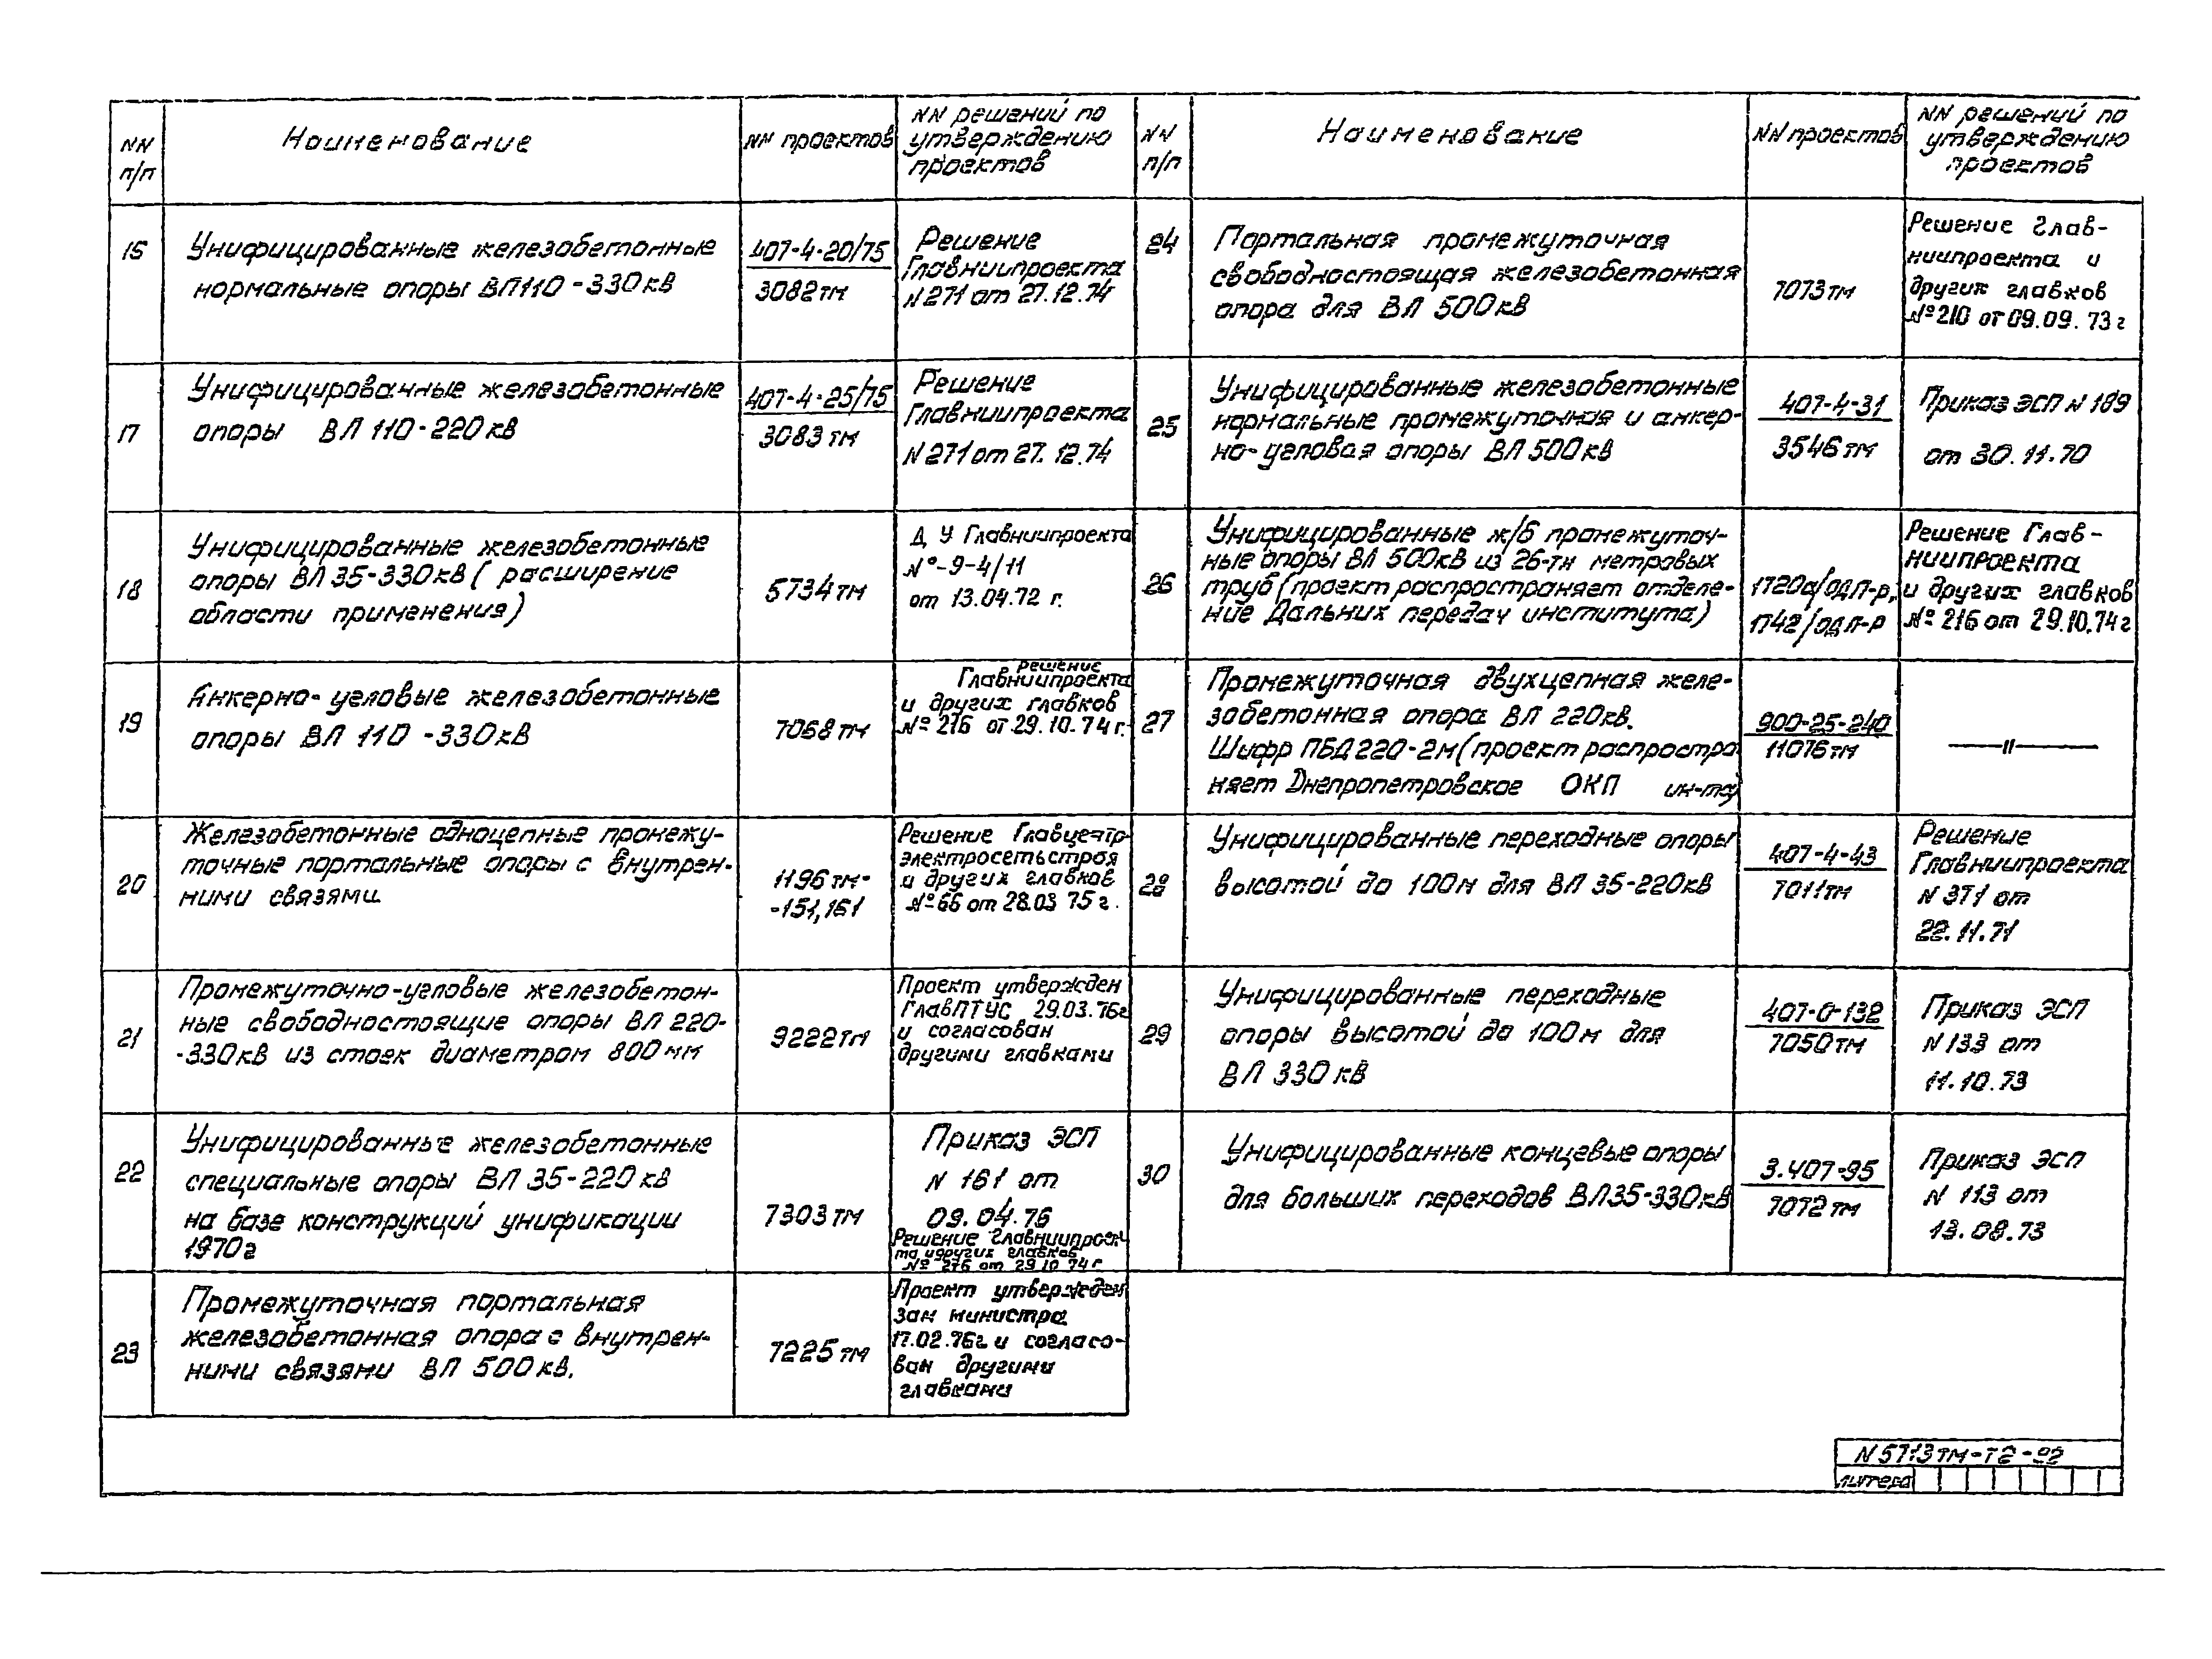 NN
п/п
Наименование
NN проектов
NN решений по
утверждению
проектов
16
Унифицированные железобетонные
нормальные опоры ВЛ110-330кВ
407-4-20/75
3082тм
Решение
Главниипроекта
N271 от 27.12.74
17
Унифицированные железобетонные
опоры ВЛ 110-220кВ
407-4-25/75
3083тм
Решение
Главниипроекта
N271 от 27.12.74
18
Унифицированные железобетонные
опоры ВЛ 35-330кВ (расширение
области применения)
5734тм
Д У Главниипроекта
№-9-4/11
от 13.04.72 г.
19
Анкерно-угловые железобетонные
опоры ВЛ 110-330кВ
7068тм
решение
Главниипроекта
и других главков
№ 216 от 29.10.74г.
20
Железобетонные одноцепные промежу-
точные портальные опоры с внутрен-
ними связями
1196тм-
-151,161
Решение Главцентр
электросетьстроя
и других главков
№66 от 28.03 75г.
21
Промежуточно-угловые железобетон-
ные свободностоящие опоры ВЛ 220-
-330кВ из стоек диаметром 800мм
9222тм
Проект утвержден
ГлавПТУС 29.03.76г
и согласован
другими главками
22
Унифицированные железобетонные
специальные опоры ВЛ 35-220кВ
на базе конструкций унификации
1970г
7303тм
Приказ ЭСП
N 161 от
09.04.76
Решение Главниипроек
та и других главков
№ 216 от 29 10 74г
23
Промежуточная портальная
железобетонная опора с внутрен-
ними связями ВЛ 500кВ.
7225тм
Проект утвержден
зам министра
17.02.76г и согласо-
ван другими
главками
NN
п/п
Наименование
NN проектов
NN решений по
утверждению
проектов
24
Портальная промежуточная
свободностоящая железобетонная
опора для ВЛ 500кВ
7073тм
Решение Глав-
ниипроекта и
других главков
№210 от 09.09.73г
25
Унифицированные железобетонные
нормальные промежуточная и анкер-
но-угловая опоры ВЛ 500кВ
407-4-31
3546тм
Приказ ЭСП N 189
от 30.11.70
26
Унифицированные ж/б промежуточ-
ные опоры ВЛ 500кВ из 26-ти метровых
труб (проект распространяет отделе-
ние Дальних передач института)
1720а/ОДП-р,
1742/ОДП-р
Решение Глав-
ниипроекта
и других главков
№ 216 от 29.10.74г
27
Промежуточная двухцепная желе-
зобетонная опора ВЛ 220кВ.
Шифр ПБД220-2м (проект распростра
няет Днепропетровское ОКП ин-та)
900-25-240
11076тм
—"—
28
Унифицированные переходные опоры
высотой до 100м для ВЛ 35-220кВ
407-4-43
7011тм
Решение
Главниипроекта
N 371 от
22.11.71
29
Унифицированные переходные
опоры высотой до 100м для
ВЛ 330кВ
407-0-132
7050тм
Приказ ЭСП
N133 от
11.10.73
30
Унифицированные концевые опоры
для больших переходов ВЛ35-330кВ
3.407-95
7072тм
Приказ ЭСП
N 113 от
13.08.73
N 5713тм-т2-92
литера